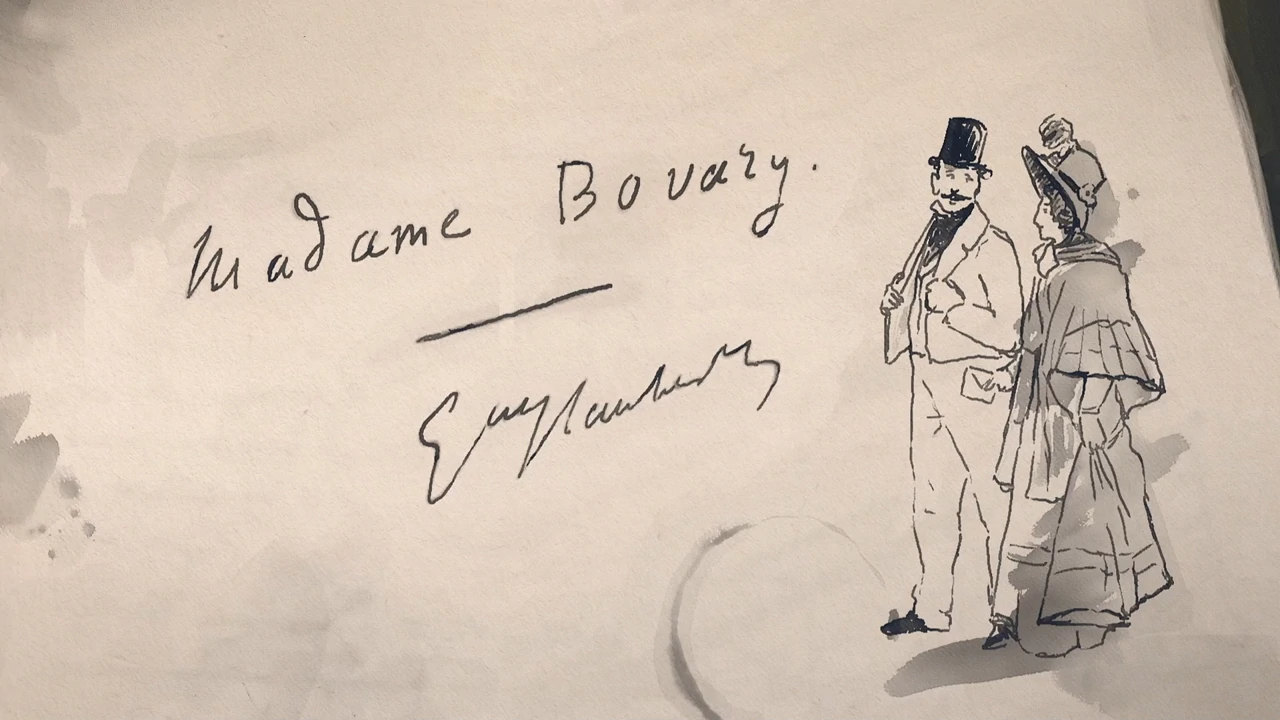 Madame Bovary.
Gve flaubert